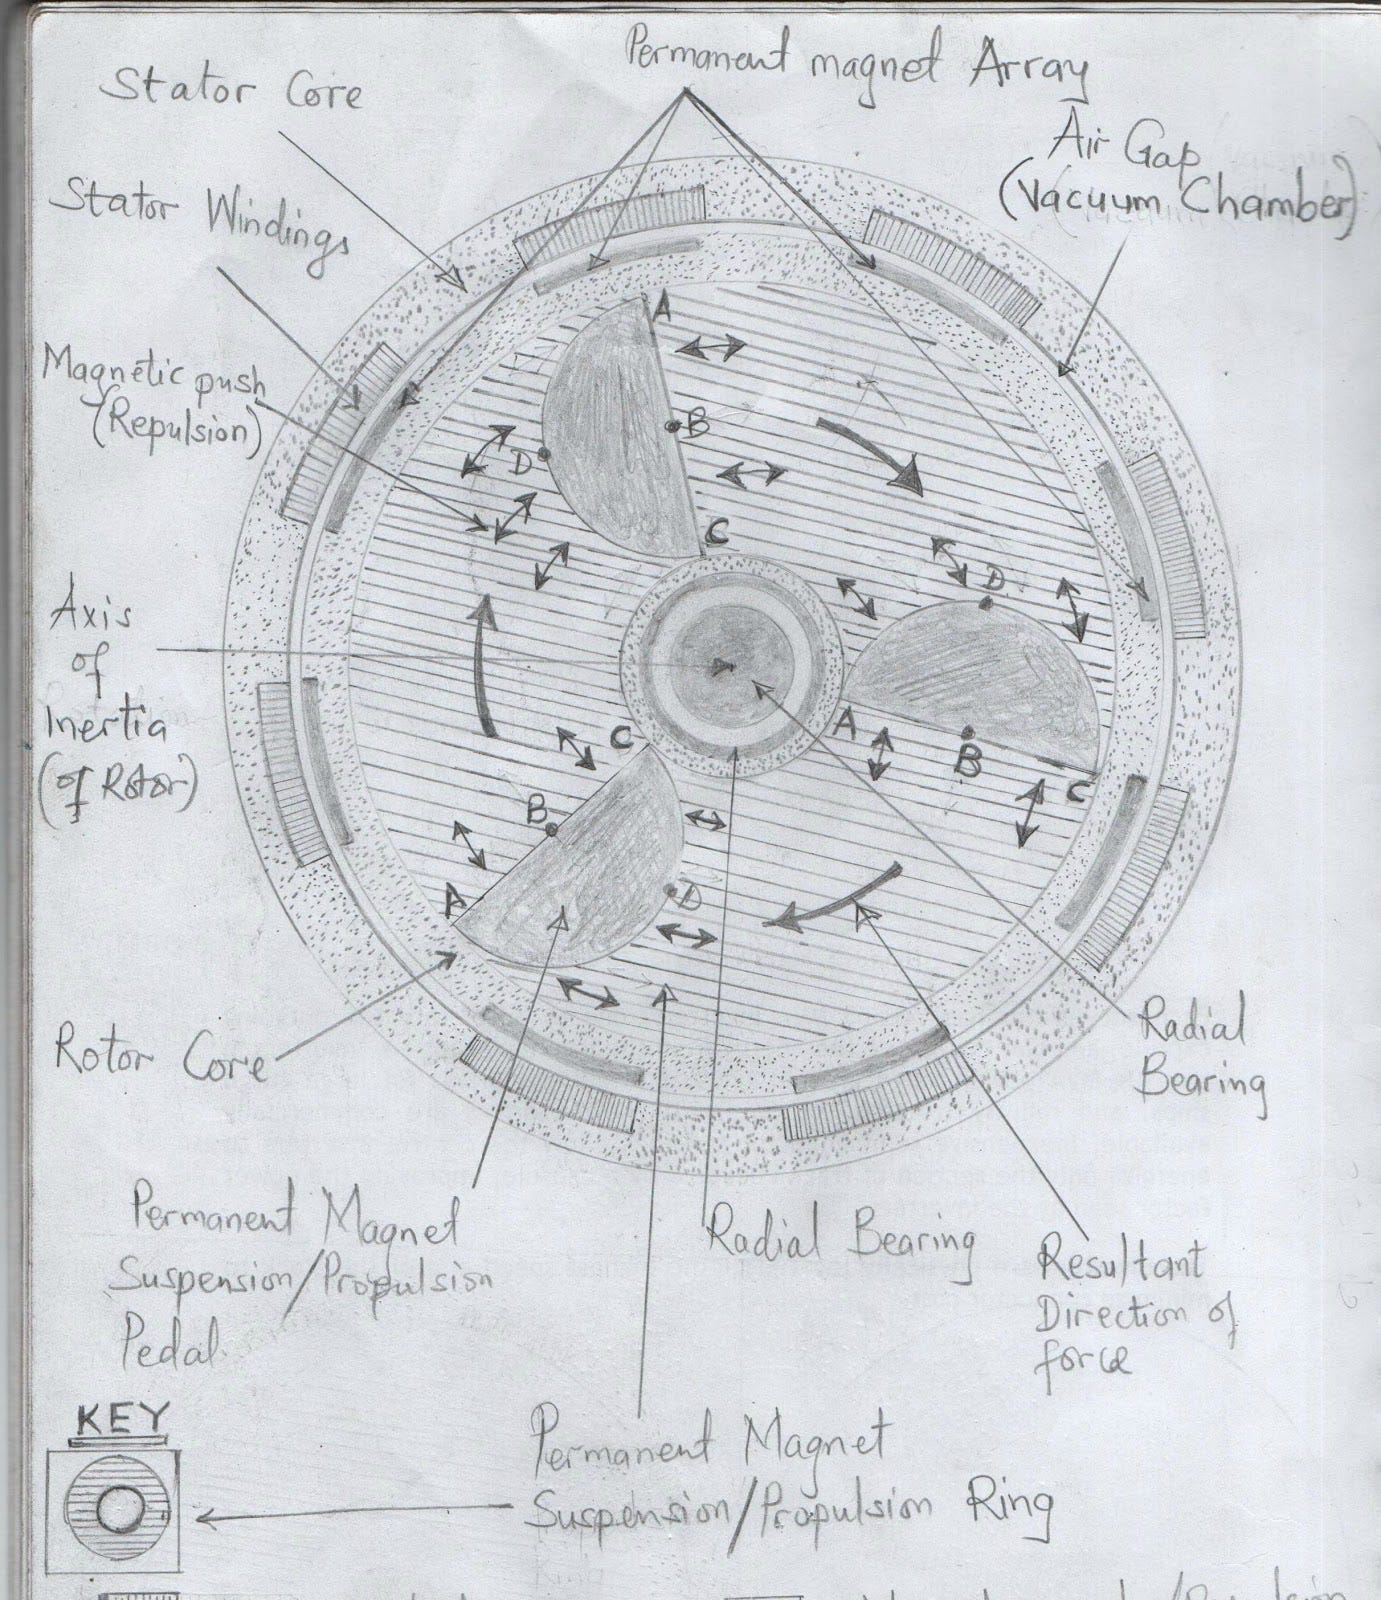 Permanent magnet Array
Stator Core
Air Gap
(Vacuum Chamber)
Stator Windings
Magnetic push
(Repulsion)
A
B
D
C
D
A
B
C
Axis
of
Inertia
(of Rotor)
C
B
A
D
Rotor Core
Radial
Bearing
Permanent Magnet
Suspension/Propulsion
Pedal
Radial Bearing
Resultant
Direction of
force
KEY
Permanent Magnet
Suspension/Propulsion Ring